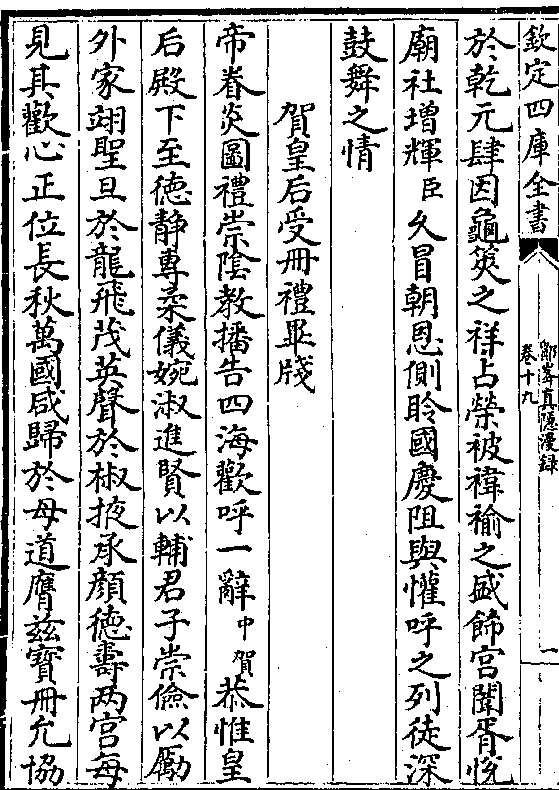 欽定四庫全書
鄮峯真隱漫録
卷十九
於乾元肆因龜筴之祥占榮被褘褕之盛飾宫闈胥悦
廟社増輝臣久冒朝恩側聆國慶阻與懽呼之列徒深
鼓舞之情
賀皇后受冊禮畢牋
帝眷炎圖禮崇陰教播告四海歡呼一辭中賀恭惟皇
后殿下至徳静專柔儀婉淑進賢以輔君子崇儉以勵
外家翊聖旦於龍飛茂英聲於椒掖承顔徳壽兩宫每
見其歡心正位長秋萬國咸歸於母道膺兹寳冊允協